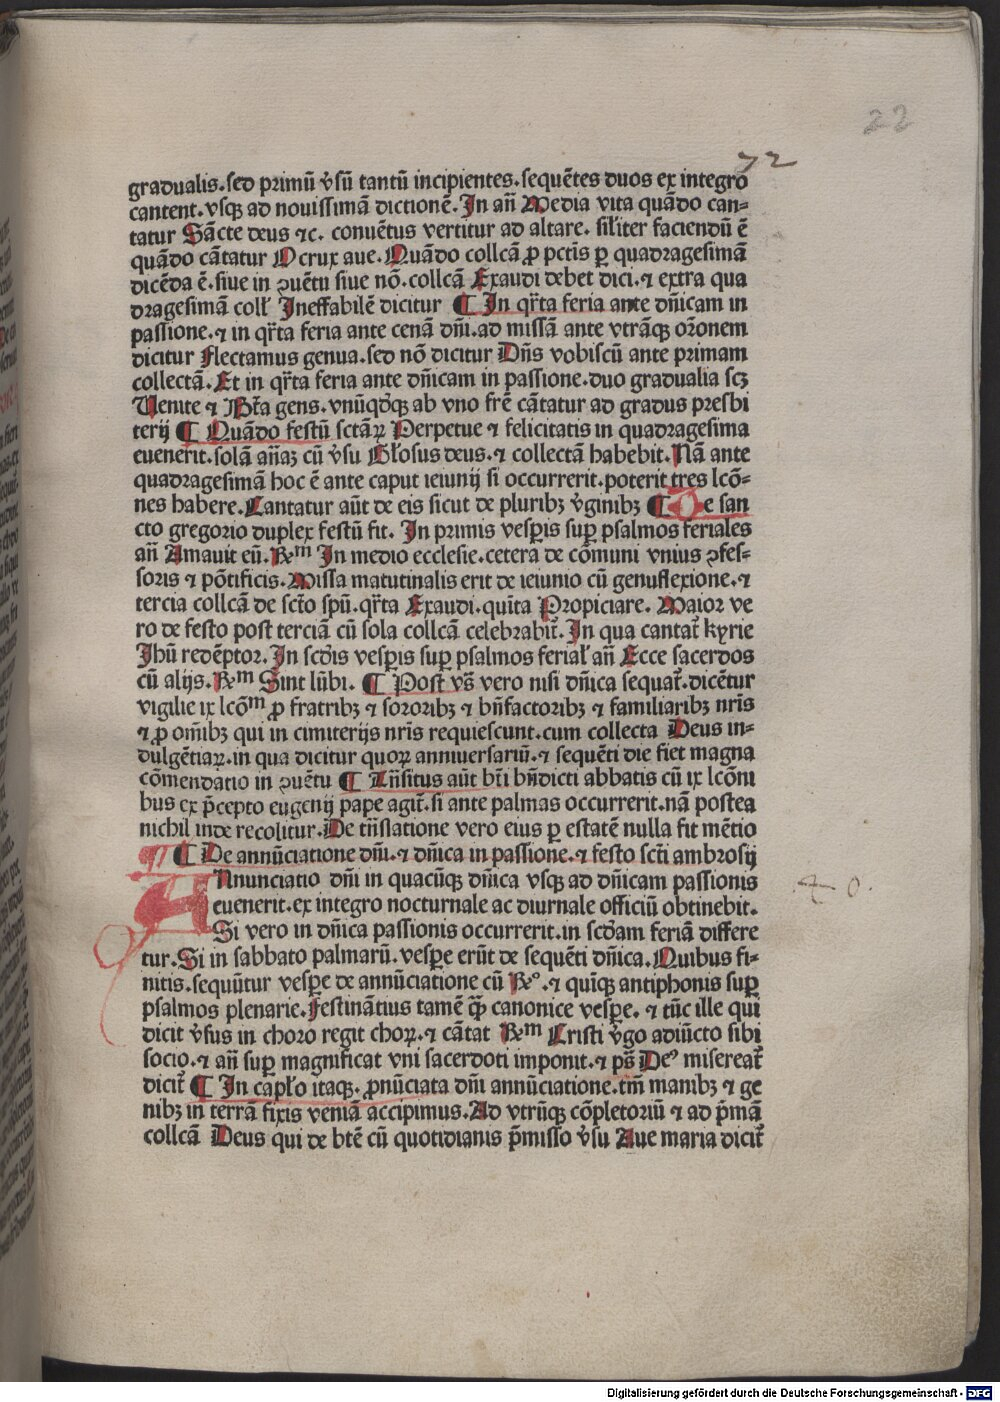 22
22
gradualis.sed primū v̄sū tantū incipientes.sequētes duos ex integro
cantent.vsqꝫ ad nouissimā dictionē.In an̄ Media vita quādo can-
tatur Sācte deus ⁊c. conuētus vertitur ad altare. silīter faciendū ē
quādo cātatur Ocrux aue. Quādo collcā ꝓ pctīs ꝑ quadragesimā
dicēda ē.siue in ꝯuētu siue nō.collcā Exaudi debet dici.⁊ extra qua
dragesimā coll̄ Ineffabilē dicitur ¶ In qr̄ta feria ante dn̄icam in
passione.⁊ in qr̄ta feria ante cenā dn̄i.ad missā ante vtrāqꝫ or̄onem
dicitur Flectamus genua.sed nō dicitur Dn̄s vobiscū ante primam
collectā.Et in qr̄ta feria ante dn̄icam in passione.duo gradualia scꝫ
Uenite ⁊ Bt̄a gens.vnūqd̓qꝫ ab vno fr̄e cātatur ad gradus presbi
terij ¶ Quādo festū sctāꝝ Perpetue ⁊ felicitatis in quadragesima
euenerit.solā an̄aꝫ cū v̄su Gl̄osus deus.⁊ collectā habebit.Nā ante
quadragesimā hoc ē ante caput ieiunij si occurrerit.poterit tres lcō-
nes habere.Cantatur aūt de eis sicut de pluribꝫ v̓ginibꝫ ¶ De san
cto gregorio duplex festū fit. In primis vesꝑis suꝑ psalmos feriales
an̄ Amauit eū.℞m In medio ecclesie.cetera de cōmuni vnius ꝯfes-
soris ⁊ pōtificis.Missa matutinalis erit de ieiunio cū genuflexione.⁊
tercia collcā de sct̄o spū.qr̄ta Exaudi.quīta Propiciare. Maior ve
ro de festo post terciā cū sola collcā celebrabit̄.In qua cantat̄ kyrie
Jhū redēptor.In scd̓is vesꝑis suꝑ psalmos ferial̄ an̄ Ecce sacerdos
cū alijs.℞m Sint lūbi. ¶ Post vs̄ vero nisi dn̄ica sequat̄.dicētur
vigilie ix lcōm ꝓ fratribꝫ ⁊ sororibꝫ ⁊ bn̄factoribꝫ ⁊ familiaribꝫ nr̄is
⁊ ꝓ om̄ibꝫ qui in cimiterijs nr̄is requiescunt.cum collecta Deus in-
dulgētiaꝝ.in qua dicitur quoꝝ anniuersariū.⁊ sequēti die fiet magna
cōmendatio in ꝯuētu ¶ Trn̄situs aūt bt̄i bn̄dicti abbatis cū ix lcōni
bus ex p̄cepto eugenij pape agit̄.si ante palmas occurrerit.nā postea
nichil inde recolitur.De trn̄slatione vero eius ꝑ estatē nulla fit mētio
¶ De annūciatione dn̄i.⁊ dn̄ica in passione.⁊ festo sct̄i ambrosij
Annunciatio dn̄i in quacūqꝫ dn̄ica vsqꝫ ad dn̄icam passionis
euenerit.ex integro nocturnale ac diurnale officiū obtinebit.
Si vero in dn̄ica passionis occurrerit.in scd̓am feriā differe
tur.Si in sabbato palmarū.vesꝑe erūt de sequēti dn̄ica.Quibus fi-
nitis.sequūtur vesꝑe de annūciatione cū ℞o.⁊ quīqꝫ antiphonis suꝑ
psalmos plenarie.Festināntius tamē qꝫ̄ canonice vesꝑe. ⁊ tūc ille qui
dicit v̓sus in choro regit choꝝ.⁊ cātat ℞m Cristi v̓go adiūcto sibi
socio.⁊ an̄ suꝑ magnificat vni sacerdoti imponit.⁊ ps̄ Deꝰ misereat̄
dicit̄ ¶ In capl̄o itaqꝫ. ꝓnūciata dn̄i annūciatione.tm̄ manibꝫ ⁊ ge
nibꝫ in terrā fixis veniā accipimus.Ad vtrūqꝫ cōpletoriū ⁊ ad p̄mā
collcā Deus qui de btē cū quotidianis p̄misso v̓su Aue maria dicit̄
Digitalisierung gefördert durch die Deutsche Forschungsgemeinschaft - DFG